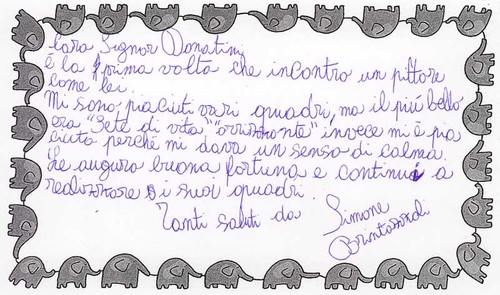 Caro Signor Donatini,
è la prima volta che incontro un pittore
come lei.
Mi sono piaciuti vari quadri, ma il più bello
era "Sete di vita" "orizzonte" invece mi è pia
ciuto perchè mi dava un senso di calma.
Le auguro buona fortuna e continui a
realizzare i suoi quadri.
Tanti saluti da Simone